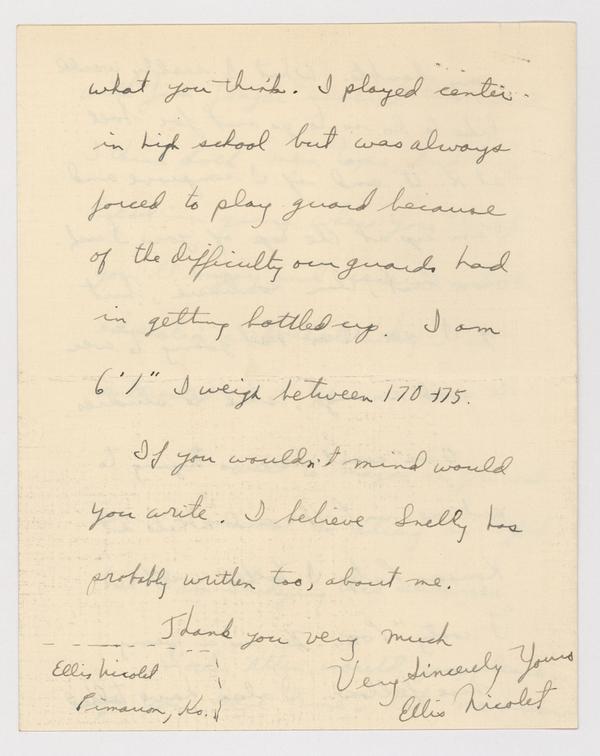 what you think. I played center
in high school but was always
forced to play guard because
of the difficulty our guards had
in getting bottled up. I am
6'1" I weigh between 170 + 75.
If you wouldn't mind would
you write. I believe Snelly has
probably written too, about me.
Thank you very much
Very Sincerely Yours
Ellis Nicolet
Ellis Nicolet
Pimaron, Ks.